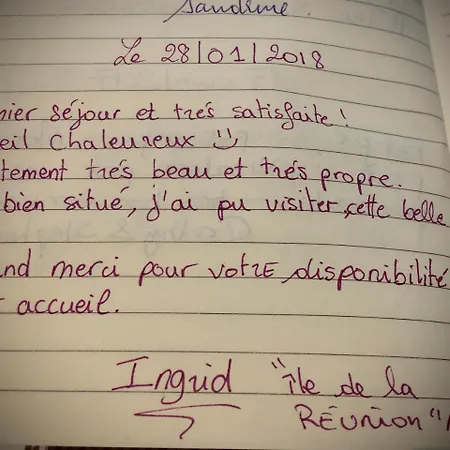 Sandrine.
Le 28/01/2018
nier séjour et très satisfaite!
eil chaleureux
tement très beau et très propre.
bien situé, j'ai pu visiter cette belle
nd merci pour votre disponibilité
accueil.
Ingrid "île de la
RÉUNION"